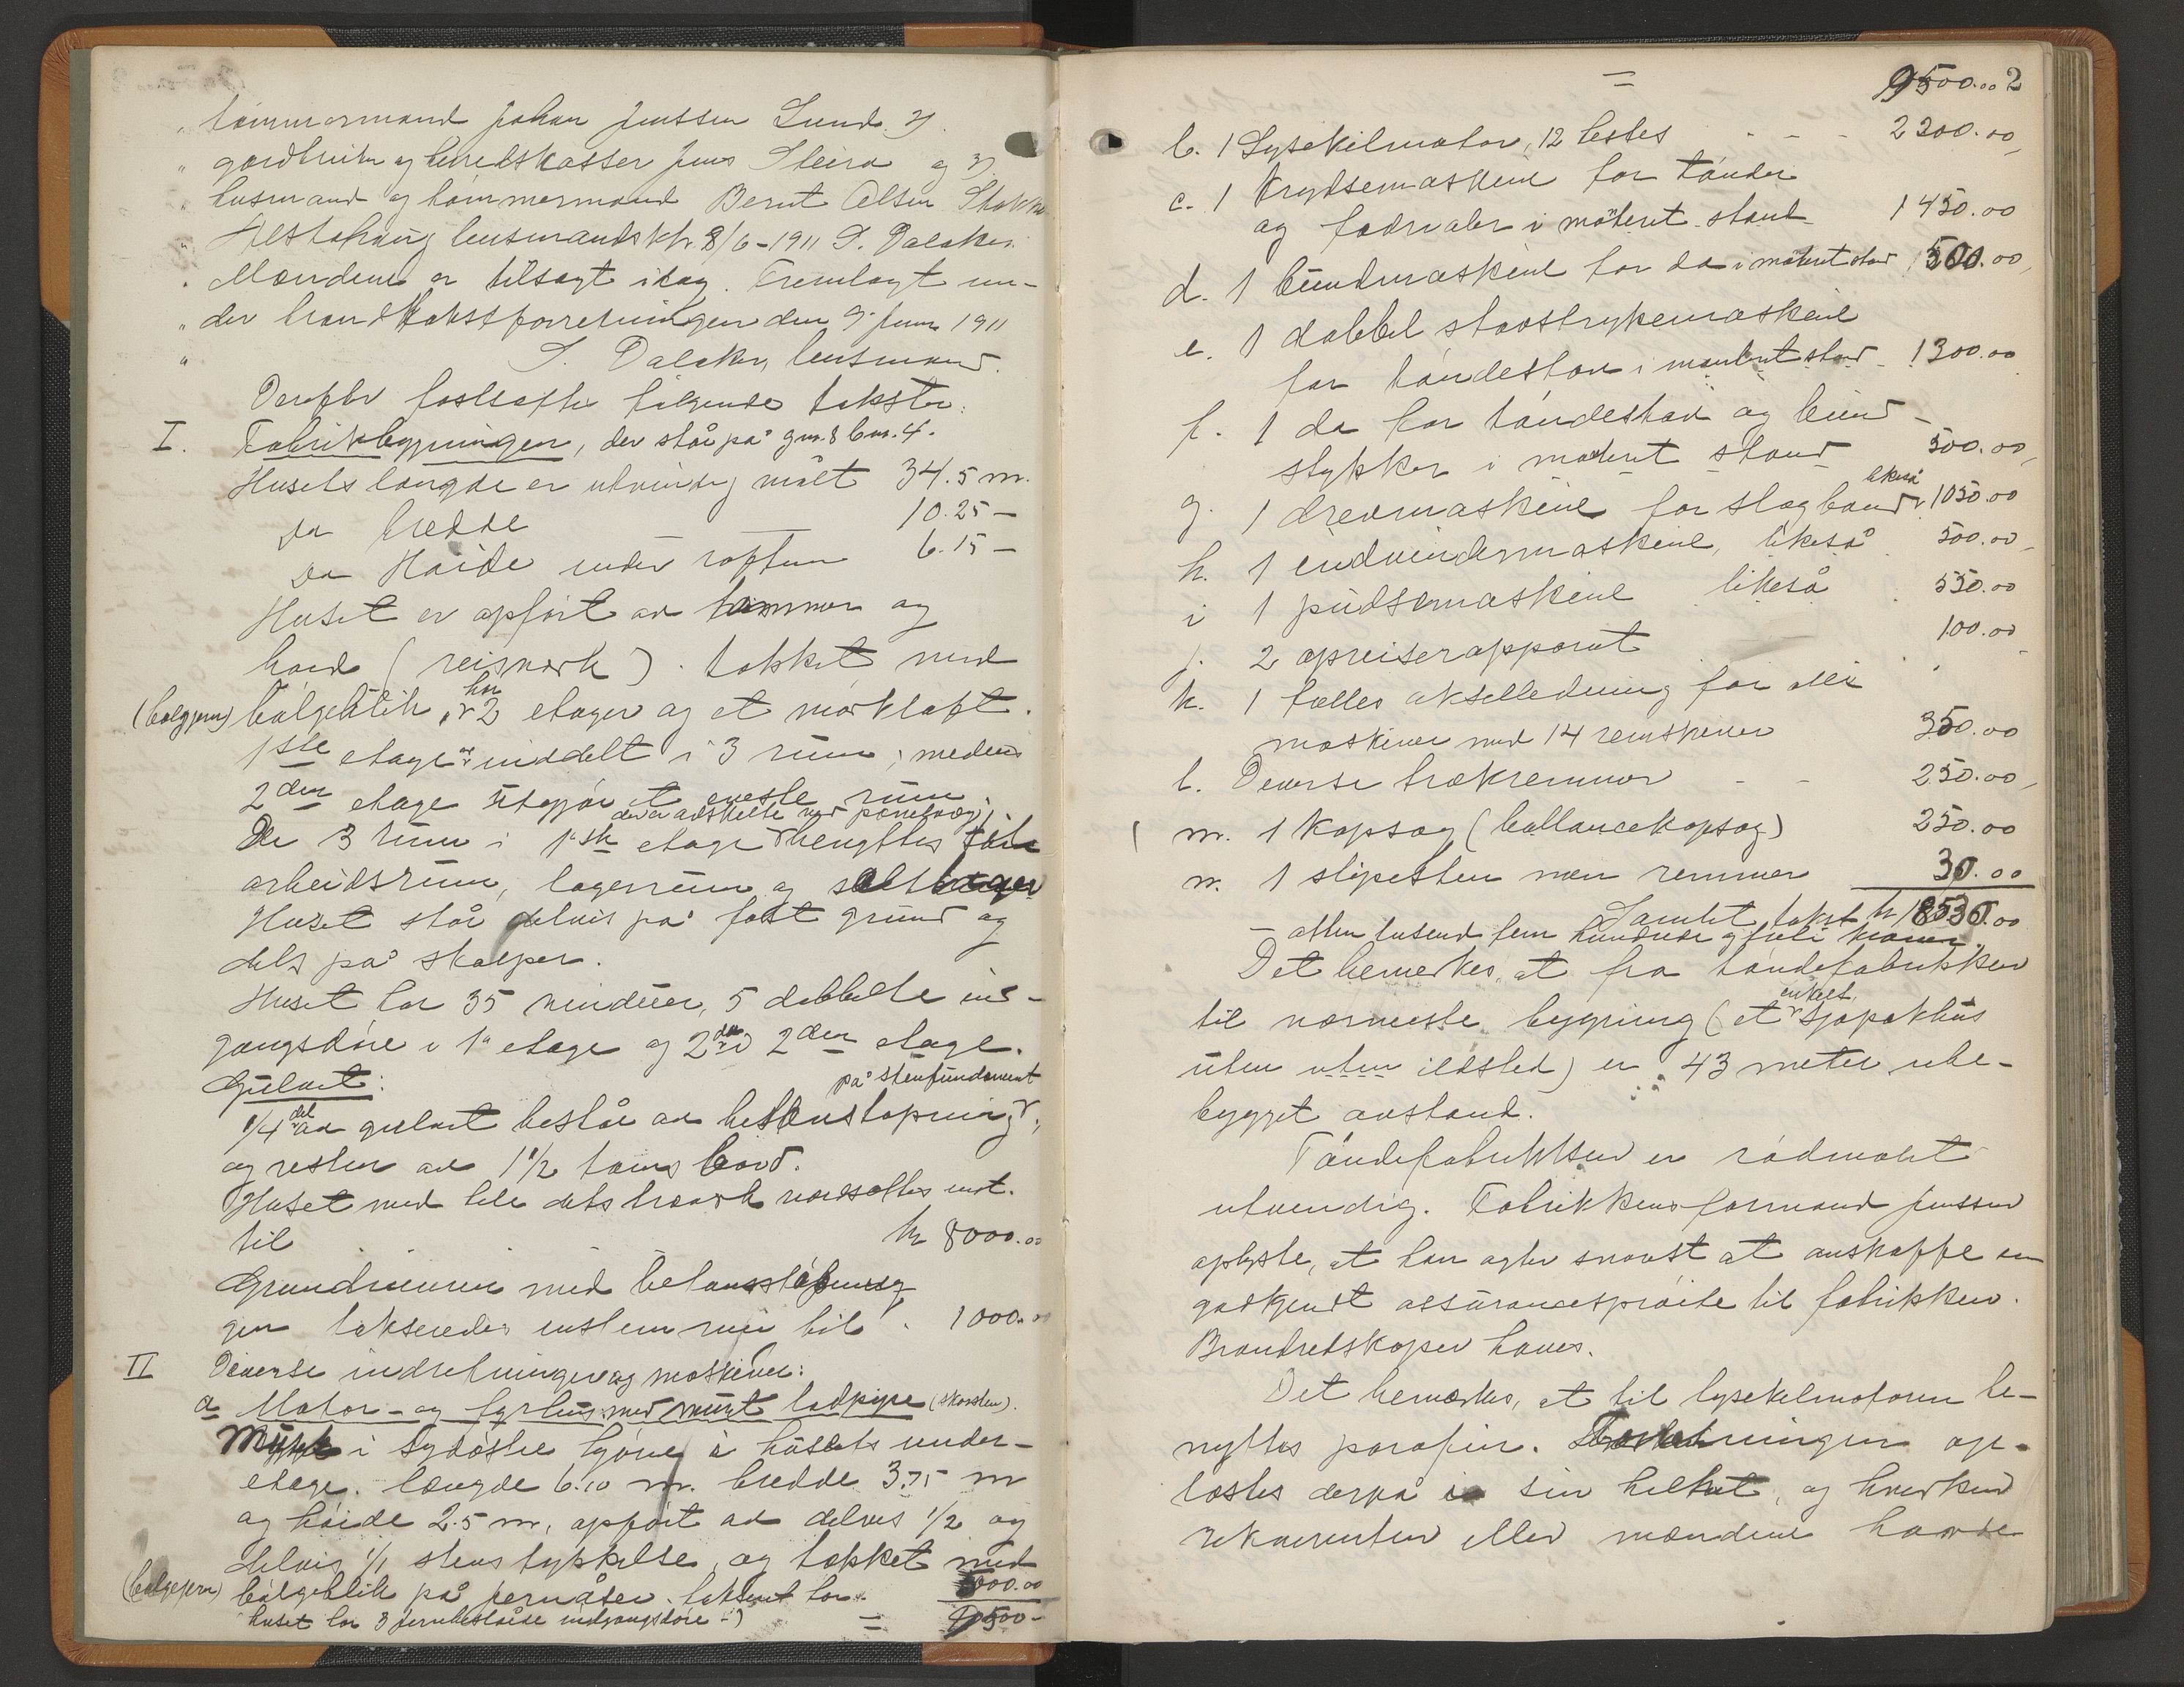 " tømmermand Johan Jenssen Lund 2)
" gaardbruker og herredskasser Jens Steira og 3)
" husmand og tømmermand Bernt Olsen Stokke
" Alstahaug lensmandsktr. 8/6-1911 S. Dalaker.
" Mændene er tilsagt idag. Fremlagt un-
" der brandtakstforretningen den 9. juni 1911
" S. Dalaker, lensmand.
Derefter fastsattes følgende takster:
I. Fabrikbygningen, der står på gm. 8 bm. 4.
Husets længde er utvendig målt 34.5 m.
Do bredde 10.25 —
Do Høide under røsten 6.15 —
Huset er opført av tømmer og
bord (reisverk). tækket med
(bølgjern) bølgeblik, har 2 etager og et mørkloft.
1ste etage er inddelt i 3 rum, medens
2den etage utgjør et eneste rum.
der er adskilte ved panelvæg
De 3 rum i 1ste etage benyttes til
arbeidsrum, lagerrum og saltlager
Huset står delvis på fast grund og
dels på stolper.
Huset har 35 vinduer, 5 dobbelte ind-
gangsdøre i 1' etage og 2 do i 2den etage.
Gulvet: på stenfundament
1/4 del av gulvet består av betonstøpning,
og resten av 1 1/2 toms bord.
Huset med hele dets træverk værdsættes
til kr 8000.00
Grundmuren med betonstøpning
gen takseredes til 1000.00
II Diverse indretninger og maskiner:
a Motor- og fyrhus med muret ladpipe (skorsten).
i Sydøstre hjørne i husets under-
etage. længde 6.10 m. bredde 3.75 m
og høide 2.5 m, opført av delvis 1/2 og
delvis 1/1 stens tykkelse, og tækket med
(bølgejern) bølgeblik på jernåser. takseret for 500.00
huset har 3 jernbeslåede indgangsdøre -:) = 9500-
= 9500.00 2
b. 1 Lysekilmotor, 12 hestes - - - 2200.00
c. 1 Krydsemaskine for tønder
og fadrialer i monteret stand 1450.00
d. 1 bundmaskine for do i monteret stand 1500.00
e. 1 dobbel stavstrykemaskine
for tøndestav i monteret stand 1300.00
f. 1 do for tøndestav og bund-
stykker i monteret stand 500.00
g. 1 drevmaskine for slagbaand likeså 1050.00
h. 1 endvindermaskine, likeså 500.00
i 1 pudsemaskine likeså 550.00
j. 2 opreiserapparat 100.00
k. 1 fælles akselledning for alle
maskiner med 14 remskiver 350.00
l. Diverse trækremmer - - 250.00
m. 1 kapsag (ballancekapsag) 250.00
n. 1 slipesten med remmer 30.00
Samlet takst kr 18530.00
— atten tusend fem hundrede og kroner.
Det bemerkes, at fra tøndefabrikken
til nærmeste bygning (et enkelt sjøpakhus
uten uten ildsted) er 43 meter ube-
bygget avstand.
Tøndefabrikken er rødmalet
utvendig. Fabrikkens formand Jenssen
oplyste, at han agter snarst at anskaffe en
godkjendt assurancesprøite til fabrikken.
Brandredskaper haves.
Det bemerkes, at til lysekilmotoren be-
nyttes parafin. Forretningen op-
læstes derpå i sin helhet, og hverken
rekvirenten eller mændene havde